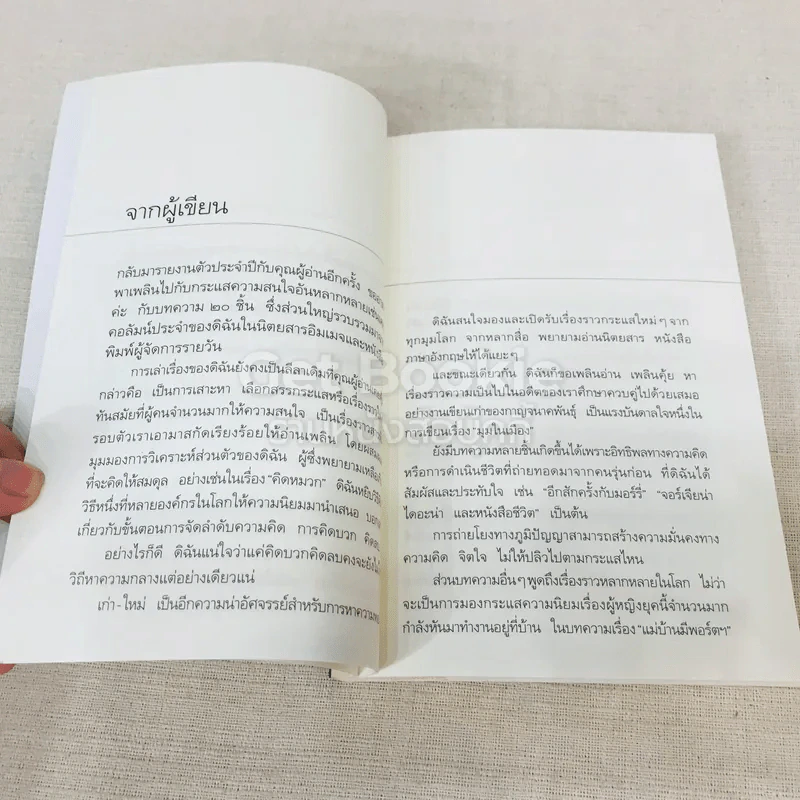 จากผู้เขียน
กลับมารายงานตัวประจำปีกับคุณผู้อ่านอีกครั้ง
พาเพลินไปกับกระแสความสนใจอันหลากหลาย
ค่ะ กับบทความ ๒๐ ชิ้น ซึ่งส่วนใหญ่รวบรวม
คอลัมน์ประจำของดิฉันในนิตยสารอิมเมจและ
พิมพ์ผู้จัดการรายวัน
การเล่าเรื่องของดิฉันยังคงเป็นลีลาเดิมที่คุณผู้อ่าน
กล่าวคือ เป็นการเสาะหา เลือกสรรกระแสหรือเรื่องราว
ทันสมัยที่ผู้คนจำนวนมากให้ความสนใจ เป็นเรื่องราว
รอบตัวเราเอามาสกัดเรียงร้อยให้อ่านเพลิน โดย
มุมมองการวิเคราะห์ส่วนตัวของดิฉัน ผู้ซึ่งพยายาม
ที่จะคิดให้สมดุล อย่างเช่นในเรื่อง "คิดหมวก" ดิฉันหยิบ
วิธีหนึ่งที่หลายองค์กรในโลกให้ความนิยมมานำเสนอ
เกี่ยวกับขั้นตอนการจัดลำดับความคิด การคิดบวก
อย่างไรก็ดี ดิฉันแน่ใจว่าแค่คิดบวกคิดลบคงจะยัง
วิถีหาความกลางแต่อย่างเดียวแน่
เก่า-ใหม่ เป็นอีกความน่าอัศจรรย์สำหรับการหา
ดิฉันสนใจมองและเปิดรับเรื่องราวกระแสใหม่ๆ จาก
ทุกมุมโลก จากหลากสื่อ พยายามอ่านนิตยสาร หนังสือ
ภาษาอังกฤษให้ได้แยะๆ
และขณะเดียวกัน ดิฉันก็ขอเพลินอ่าน เพลินคุ้ย หา
เรื่องราวความเป็นไปในอดีตของเราศึกษาควบคู่ไปด้วยเสมอ
อย่างงานเขียนเก่าของกาญจนาคพันธุ์ เป็นแรงบันดาลใจหนึ่งใน
การเขียนเรื่อง "มุมในเมือง"
ยังมีบทความหลายชิ้นเกิดขึ้นได้เพราะอิทธิพลทางความคิด
หรือการดำเนินชีวิตที่ถ่ายทอดมาจากคนรุ่นก่อน ที่ดิฉันได้
สัมผัสและประทับใจ เช่น "อีกสักครั้งกับมอร์รี่" "จอร์เจียน่า
ไดอะน่า และหนังสือชีวิต" เป็นต้น
การถ่ายโยงทางภูมิปัญญาสามารถสร้างความมั่นคงทาง
ความคิด จิตใจ ไม่ให้ปลิวไปตามกระแสไหน
ส่วนบทความอื่นๆ พูดถึงเรื่องราวหลากหลายในโลก ไม่ว่า
จะเป็นการมองกระแสความนิยมเรื่องผู้หญิงยุคนี้จำนวนมาก
กำลังหันมาทำงานอยู่ที่บ้าน ในบทความเรื่อง "แม่บ้านมีพอร์ตฯ"
Get Bookie